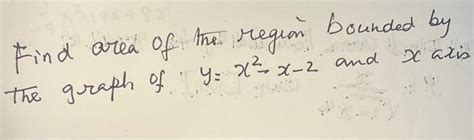 Find area of the region bounded by
the graph of y= x²-x-2 and x axis